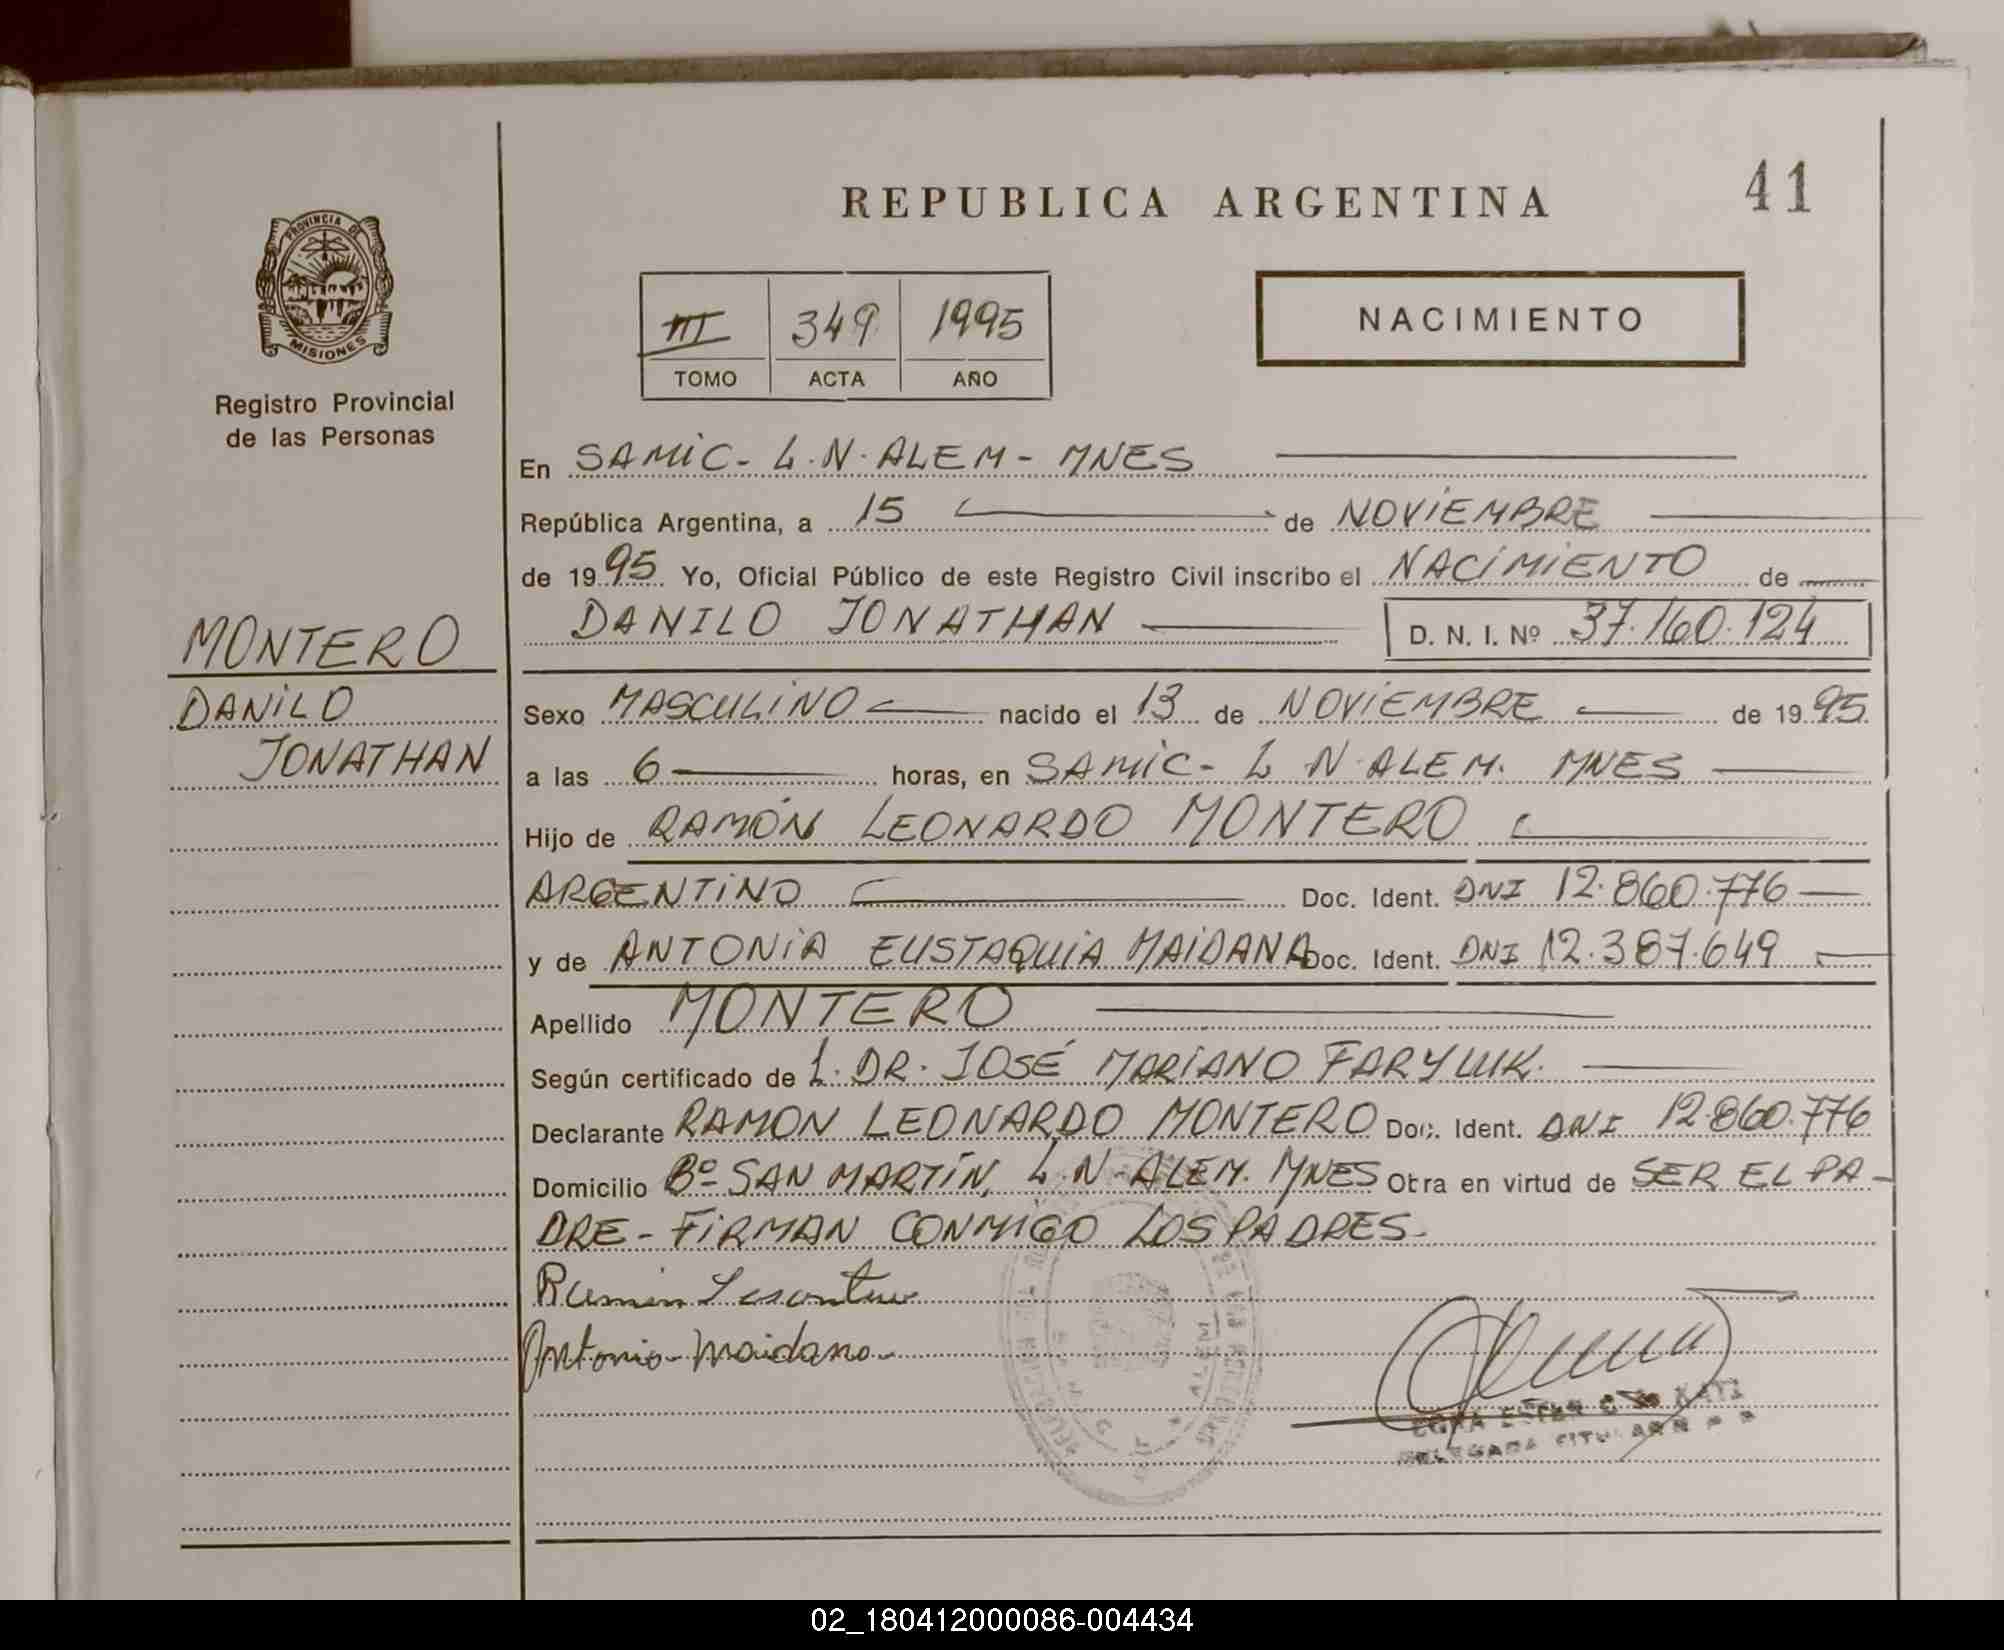 REPUBLICA ARGENTINA
41
PROVINCIA DE
MISIONES
Registro Provincial
de las Personas
III 349 1995
TOMO ACTA AÑO
NACIMIENTO
En SAMIC - L.N. ALEM - MNES
República Argentina, a 15 de NOVIEMBRE
de 1995 Yo, Oficial Público de este Registro Civil inscribo el NACIMIENTO de
DANILO JONATHAN D. N. I. Nº 37.160.124
MONTERO
DANILO
JONATHAN
Sexo MASCULINO nacido el 13 de NOVIEMBRE de 1995
a las 6 horas, en SAMIC - L N. ALEM. MNES
Hijo de RAMÓN LEONARDO MONTERO
ARGENTINO Doc. Ident. DNI 12.860.776
y de ANTONIA EUSTAQUIA MAIDANA Doc. Ident. DNI 12.387.649
Apellido MONTERO
Según certificado de L. DR. JOSÉ MARIANO FARYLUK.
Declarante RAMON LEONARDO MONTERO Doc. Ident. DNI 12.860.776
Domicilio Bº SAN MARTÍN, L.N. ALEM. MNES Otra en virtud de SER EL PA-
DRE - FIRMAN CONMIGO LOS PADRES.
Antonia Maidana
02_180412000086-004434